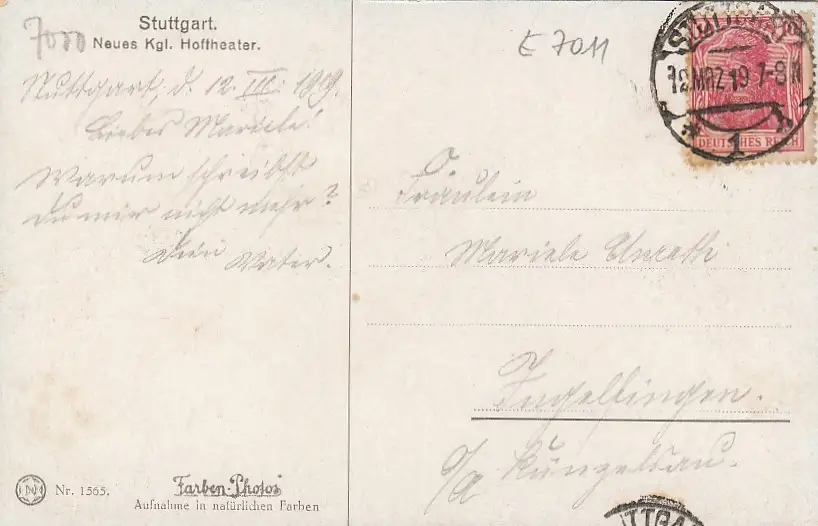 7000
Stuttgart.
Neues Kgl. Hoftheater.
Stuttgart, d. 12. III. 1919.
Liebes Mariele!
Warum schreibst
Du mir nicht mehr?
Dein Vater.
Nr. 1565.
Farben-Photos
Aufnahme in natürlichen Farben
E 7011
STUTTGART
12.MRZ 19 7-8 N
* 1 *
DEUTSCHES REICH
Fräulein
Mariele
Ingelfingen.
O/A Künzelsau.